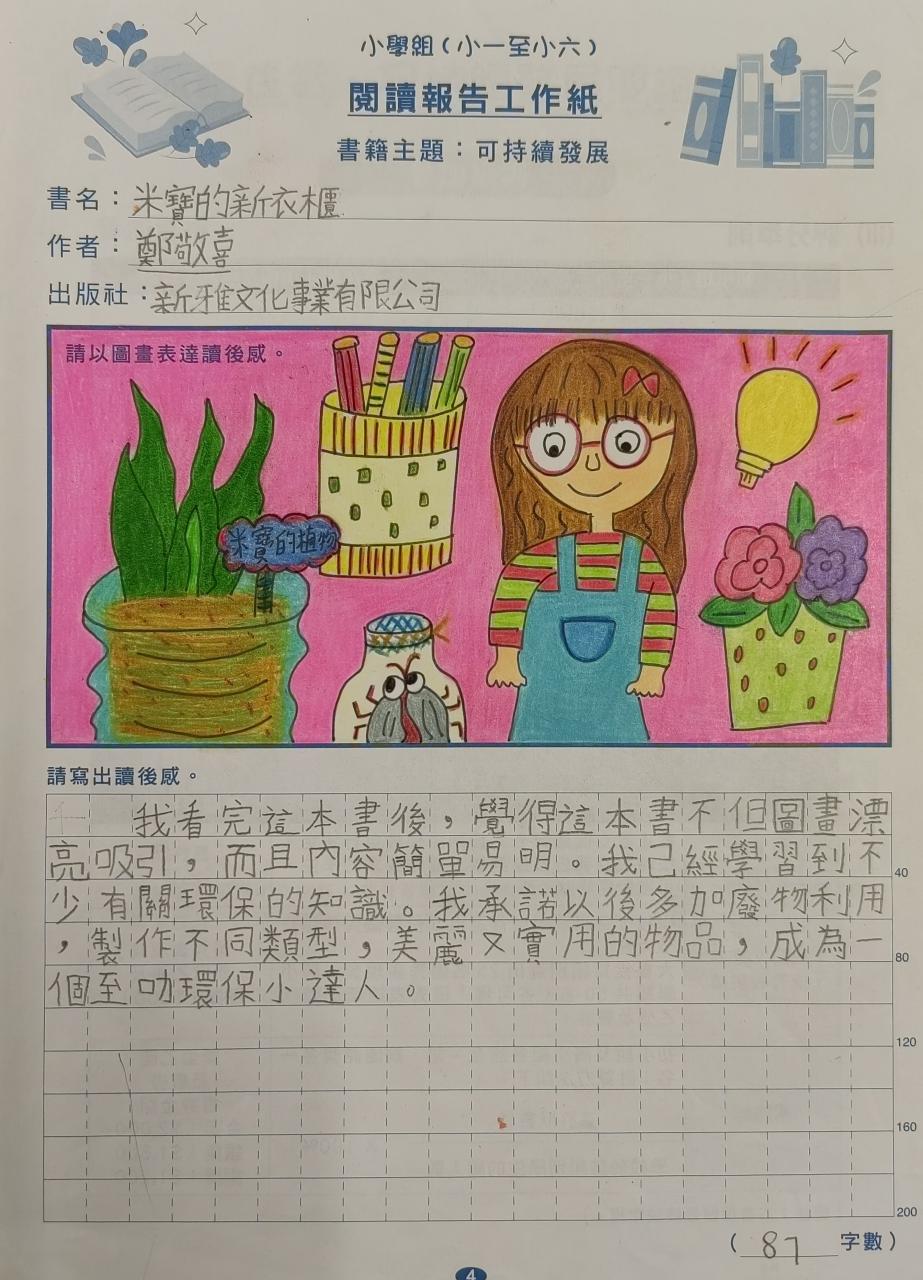 小學組(小一至小六)
閱讀報告工作紙
書籍主題:可持續發展
書名:米寶的新衣櫃
作者:鄭敬喜
出版社:新雅文化事業有限公司
請以圖畫表達讀後感。
米寶的植物
請寫出讀後感。
我看完這本書後,覺得這本書不但圖畫漂
亮吸引,而且內容簡單易明。我已經學習到不
40
少有關環保的知識。我承諾以後多加廢物利用
,製作不同類型,美麗又實用的物品,成為一
80
個至叻環保小達人。
120
160
200
(87字數)
4